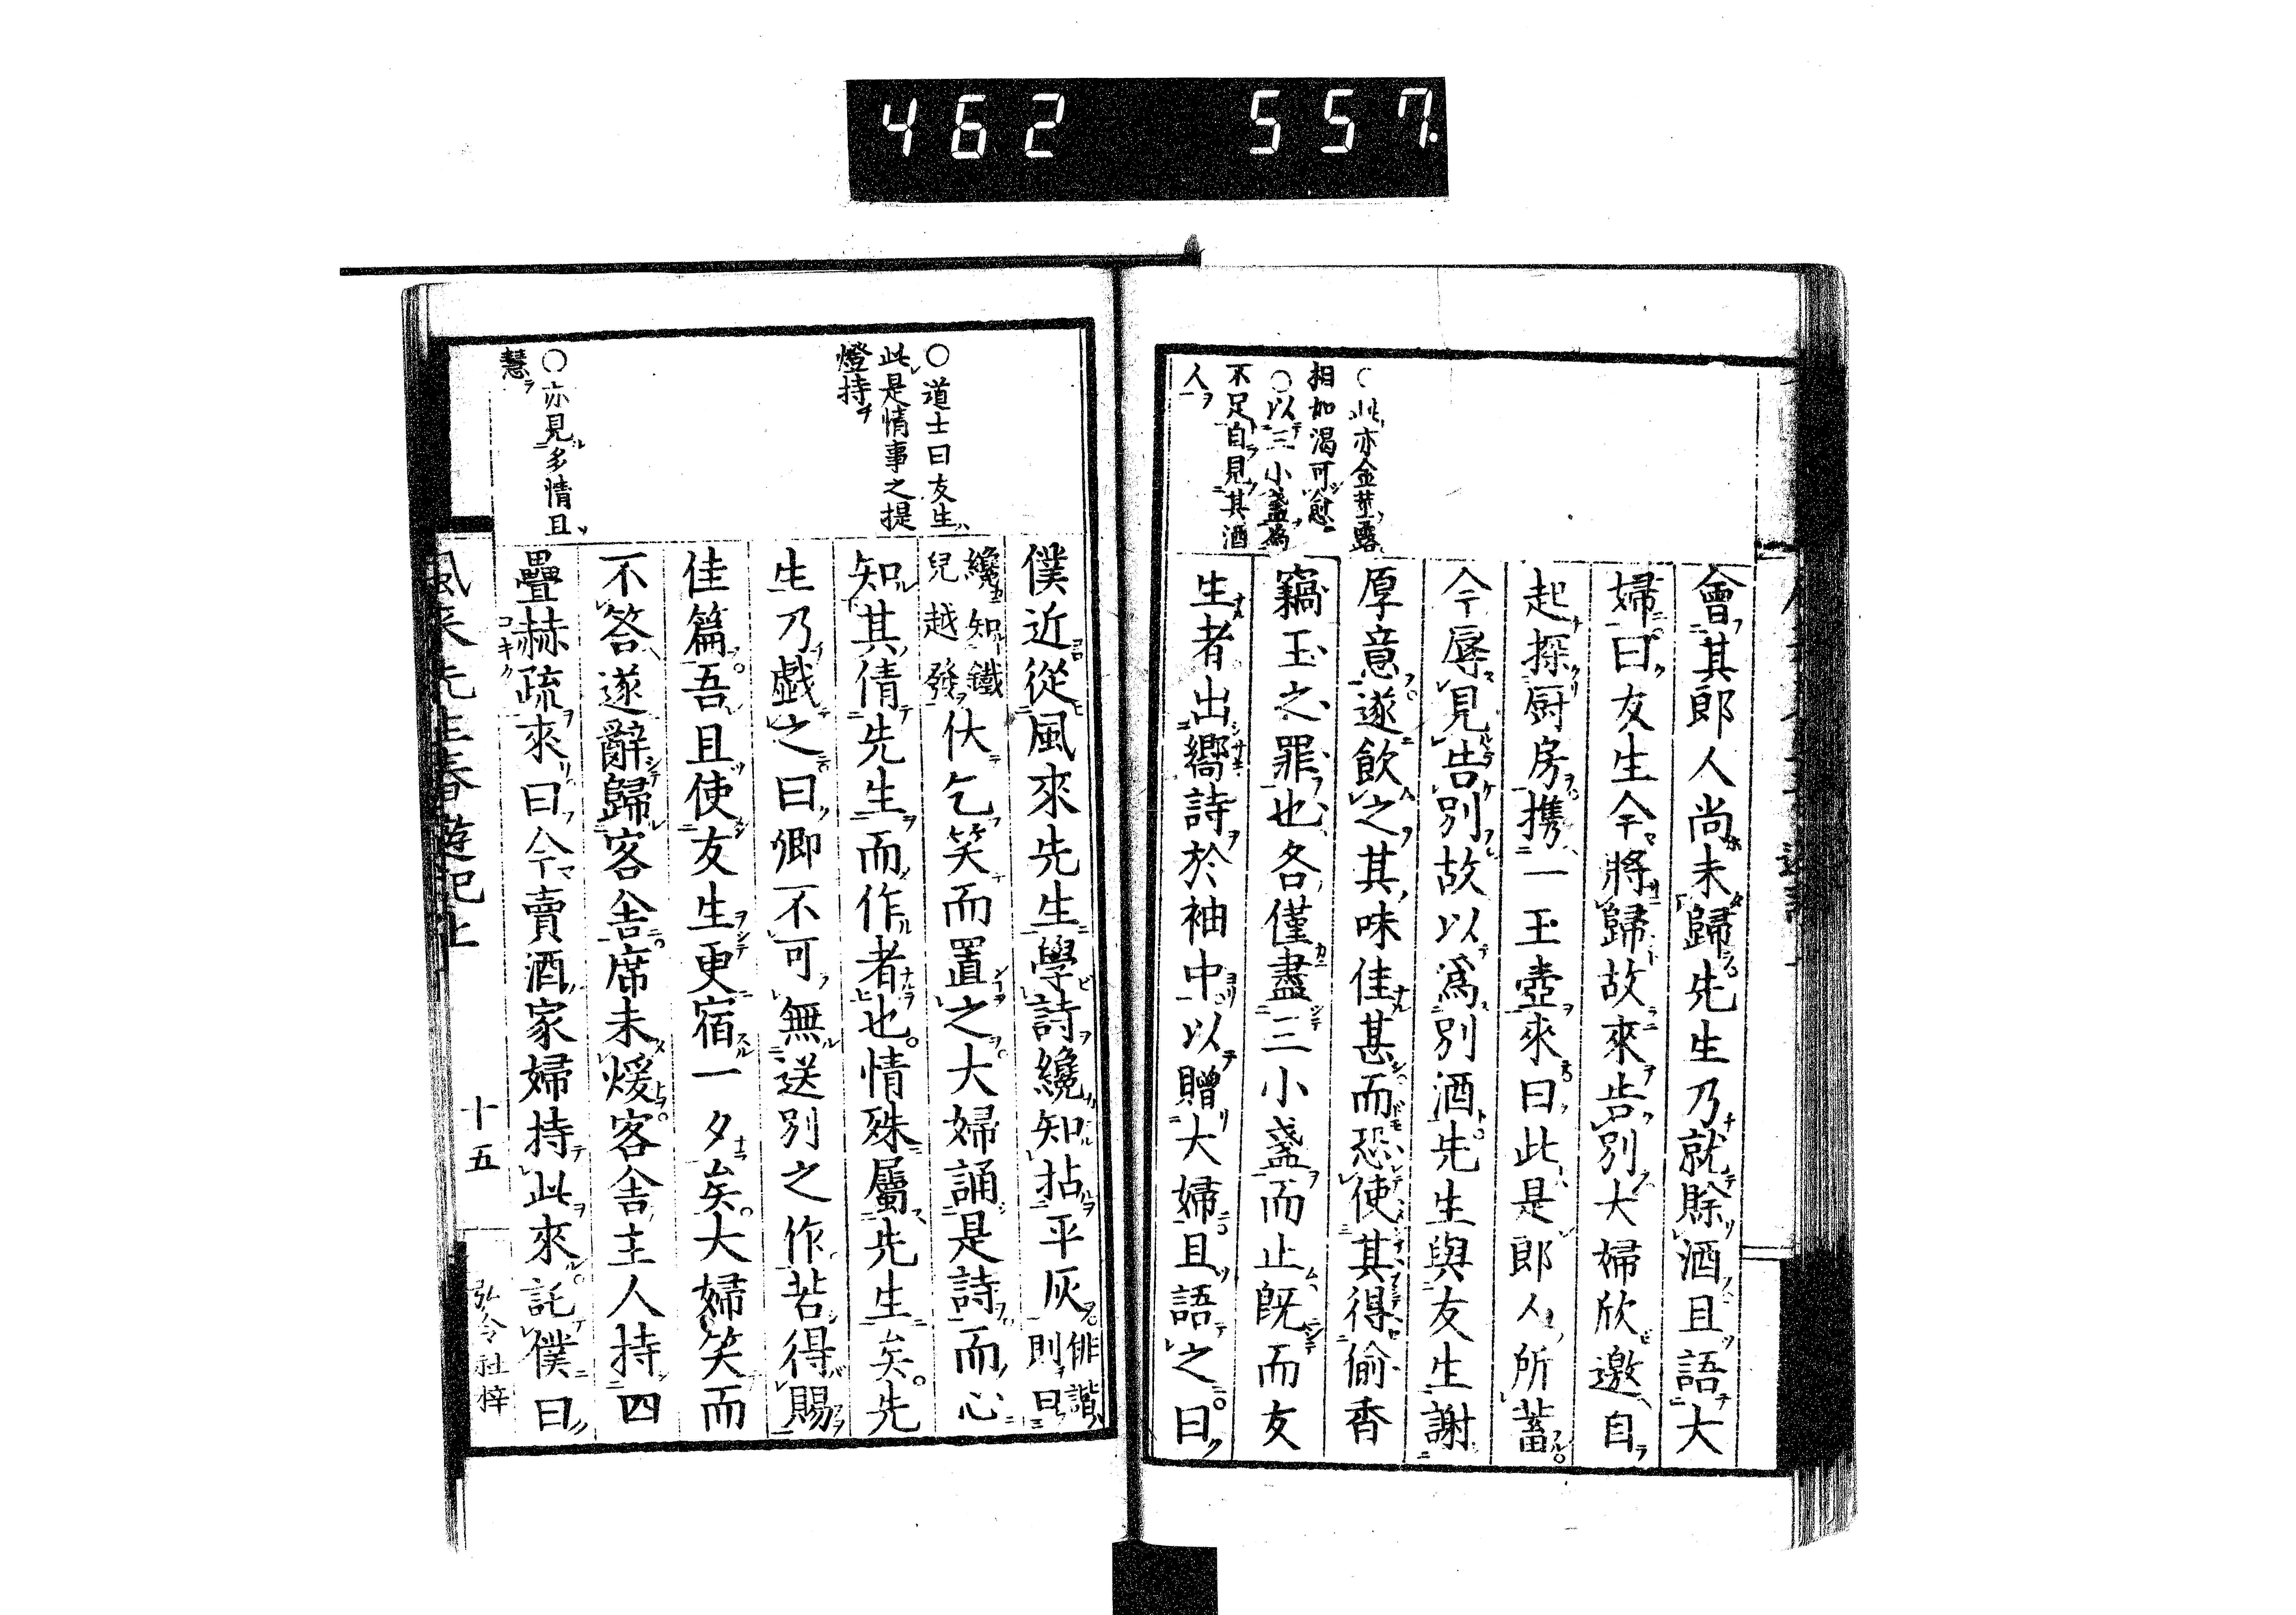 462 557
○此亦金莖露
相如渴可愈
○以三小盞為
不足自見其酒
人
會其郎人尚未歸先生乃就賖酒且語大
婦曰友生今將歸故來告別大婦欣邀自
起探厨房携一玉壺來曰此是郎人所蓄
今辱見告別故以爲別酒先生與友生謝
厚意遂飲之其味佳甚而恐使其得偷香
竊玉之罪也各僅盡三小盞而止既而友
生者出嚮詩於袖中以贈大婦且語之曰
○道士曰友生
此是情事之提
燈持
○亦見多情且
慧
僕近從風來先生學詩纔知拈平灰俳諧則曰
纔知鐵兒越發伏乞笑而置之大婦誦是詩而心
知其倩先生而作者也情殊屬先生矣先
生乃戯之曰卿不可無送別之作若得賜
佳篇吾且使友生更宿一夕矣大婦笑而
不答遂辭歸客舎席未煖客舎主人持四
疊赫疏來曰今賣酒家婦持此來託僕曰
コキク
風来先生春遊記上
十五
弘令社梓